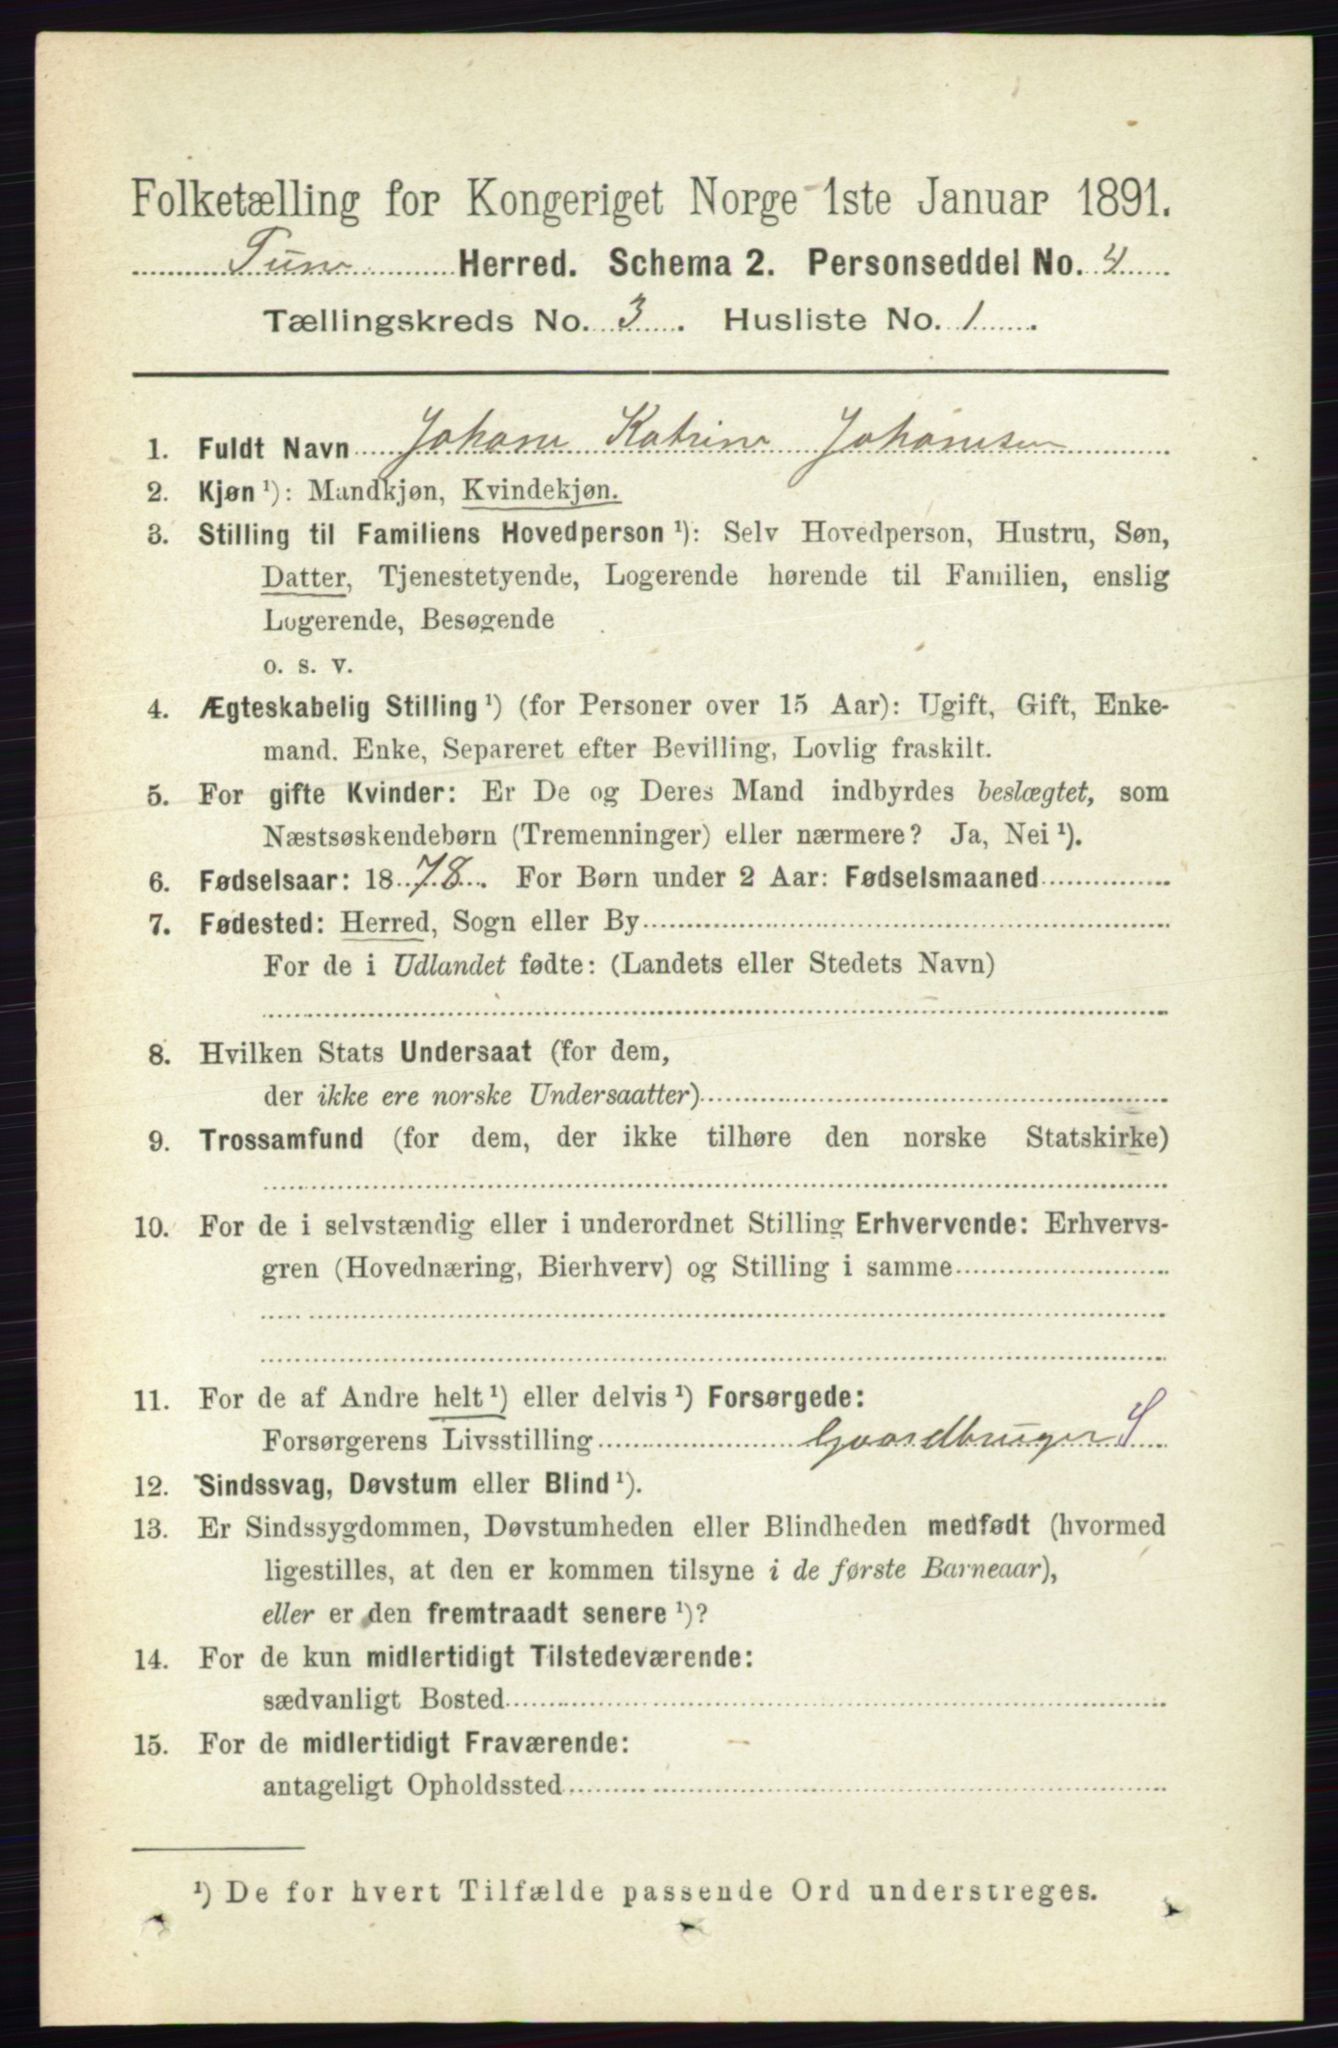 Folketælling for Kongeriget Norge 1ste Januar 1891.
Tune Herred. Schema 2. Personseddel No. 4
Tællingskreds No. 3. Husliste No. 1.
1. Fuldt Navn Johane Katrine Johansen
2. Kjøn ¹): Mandkjøn, Kvindekjøn.
3. Stilling til Familiens Hovedperson ¹): Selv Hovedperson, Hustru, Søn,
Datter, Tjenestetyende, Logerende hørende til Familien, enslig
Logerende, Besøgende
o. s. v.
4. Ægteskabelig Stilling ¹) (for Personer over 15 Aar): Ugift, Gift, Enke-
mand. Enke, Separeret efter Bevilling, Lovlig fraskilt.
5. For gifte Kvinder: Er De og Deres Mand indbyrdes beslægtet, som
Næstsøskendebørn (Tremenninger) eller nærmere? Ja, Nei ¹).
6. Fødselsaar: 1878. For Børn under 2 Aar: Fødselsmaaned
7. Fødested: Herred, Sogn eller By
For de i Udlandet fødte: (Landets eller Stedets Navn)
8. Hvilken Stats Undersaat (for dem,
der ikke ere norske Undersaatter)
9. Trossamfund (for dem, der ikke tilhøre den norske Statskirke)
10. For de i selvstændig eller i underordnet Stilling Erhvervende: Erhvervs-
gren (Hovednæring, Bierhverv) og Stilling i samme
11. For de af Andre helt ¹) eller delvis ¹) Forsørgede:
Forsørgerens Livsstilling Gaardbruger S
12. Sindssvag, Døvstum eller Blind ¹).
13. Er Sindssygdommen, Døvstumheden eller Blindheden medfødt (hvormed
ligestilles, at den er kommen tilsyne i de første Barneaar),
eller er den fremtraadt senere ¹)?
14. For de kun midlertidigt Tilstedeværende:
sædvanligt Bosted
15. For de midlertidigt Fraværende:
antageligt Opholdssted
¹) De for hvert Tilfælde passende Ord understreges.